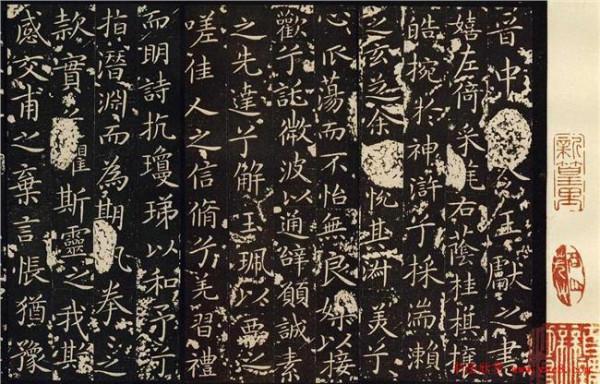 晉中令王獻之書
嬉左倚采旄右蔭桂旗攘
皓捥於神滸兮採湍瀨
之玄芝余悅其淑美兮
心蕩而不怡無良媒以接
歡兮託微波以通辭願誠素
之先達兮解玉珮以要之
嗟佳人之信脩兮羌習禮
而明詩抗瓊珶以和予兮
指潛淵而為期執拳〻之
款實兮懼斯靈之我欺
感交甫之棄言悵猶豫